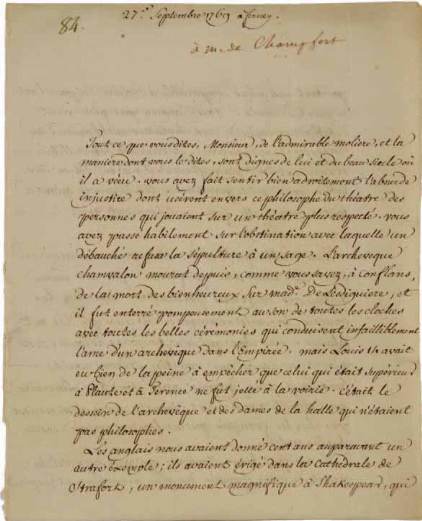 84.
27.e Septembre 1769 à Ferney.
à m. de Champfort
Tout ce que vous dites, Monsieur, de l'admirable moliere, et la
maniere dont vous le dites, sont dignes de lui et du beau siecle où
il a vécu. vous avez fait sentir bien adroitement l'absurde
injustice dont usèrent envers ce philosophe du théatre des
personnes qui jouaient sur un théatre plus respecté. vous
avez passé habilement sur l'obstination avec laquelle un
débauché refusa la sépulture à un sage. L'archevêque
chanvalon mourut depuis, comme vous savez, à Conflans,
de la mort des bienheureux sur mad.e De Lesdiguiere, et
il fut enterré pompeusement au son de toutes les cloches
avec toutes les belles cérémonies qui conduisent infailliblement
l'ame d'un archevêque dans l'Empirée. mais Louis 14 avait
eu bien de la peine à empêcher que celui qui était supérieur
à Plaute et à Terence ne fut jetté à la voirie. c'était le
dessein de l'archevêque et des dames de la halle qui n'étaient
pas philosophes.
Les anglais nous avaient donné cent ans auparavant un
autre éxemple; ils avaient érigé dans la Cathédrale de
Strafort, un monument magnifique à Shakespear, qui